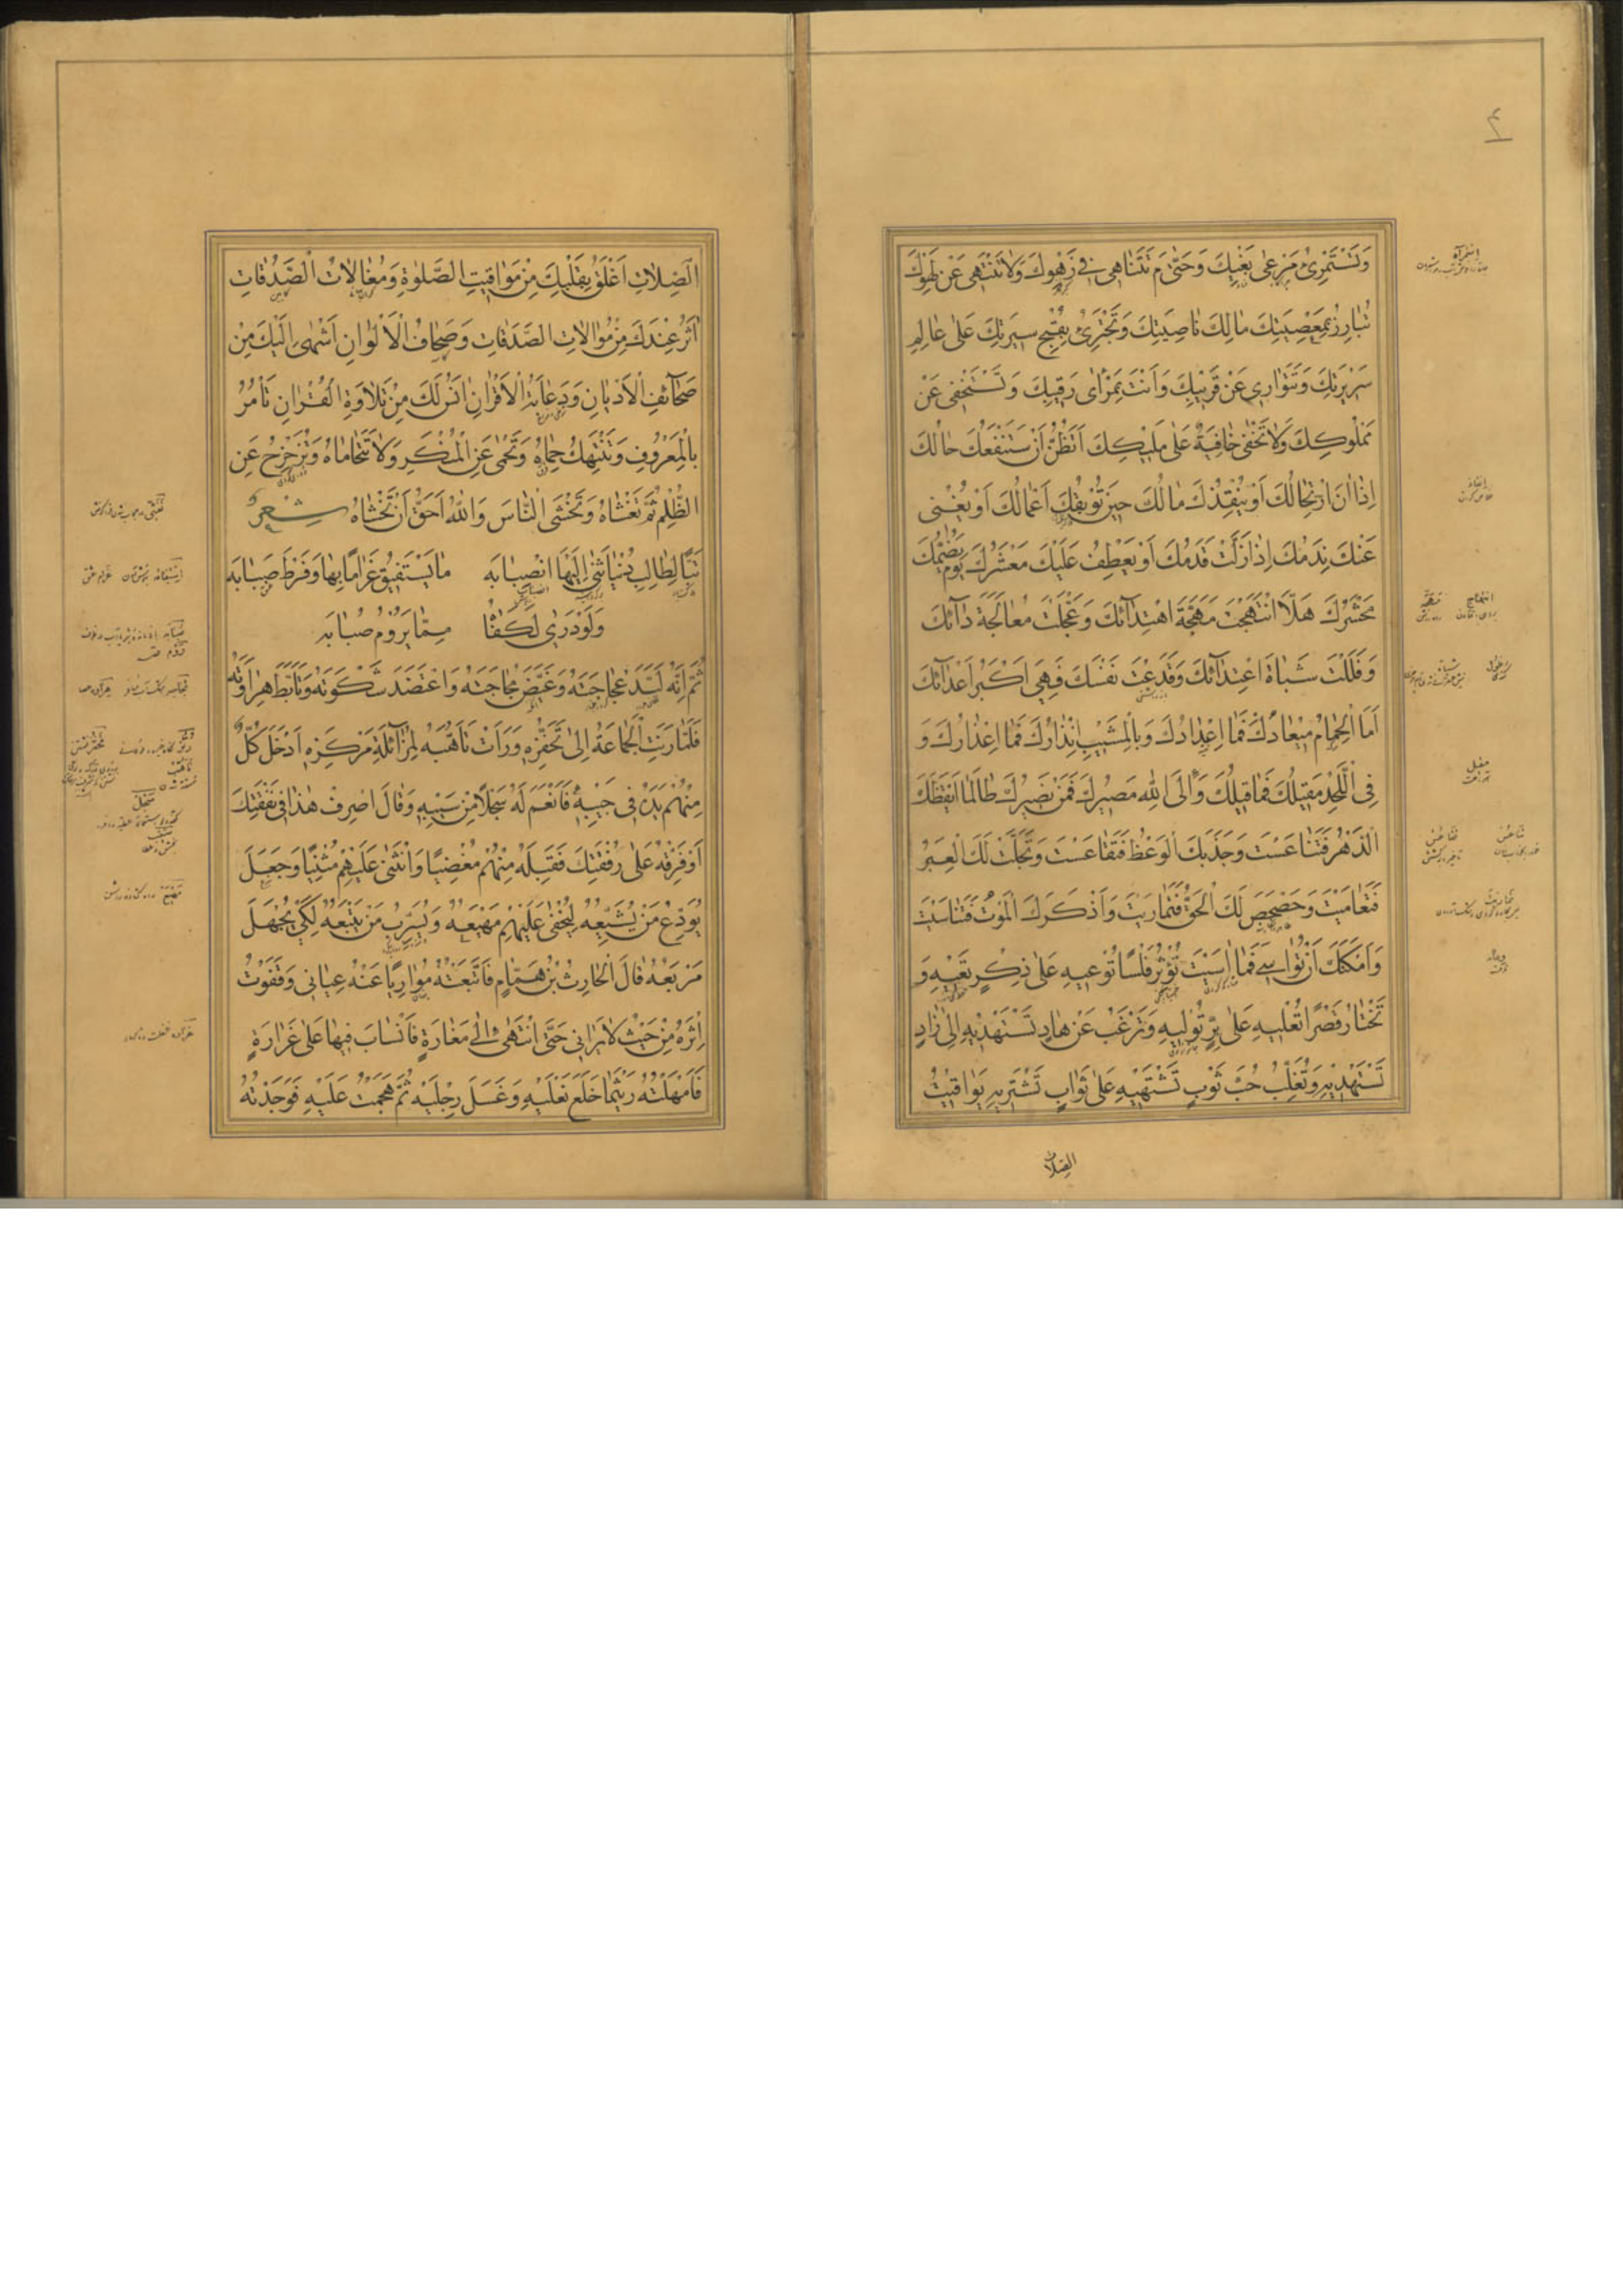 وَتَسْتَمْرِئُ مَرْعٰى بَغْيِكَ وَحَتّٰى مَ تَتَنَاهٰى فِي زَهْوِكَ وَلَا تَنْتَهِي عَنْ لَهْوِكَ
تُبَارِزُ بِمَعْصِيَتِكَ مَالِكَ نَاصِيَتِكَ وَتَجْتَرِئُ بِقُبْحِ سِيرَتِكَ عَلٰى عَالِمِ
سَرِيرَتِكَ وَتَتَوَارٰى عَنْ قَرِيبِكَ وَاَنْتَ بِمَرْاٰى رَقِيبِكَ وَتَسْتَخْفِي عَنْ
مَمْلُوكِكَ وَلَا تَخْفٰى خَافِيَةٌ عَلٰى مَلِيكِكَ اَتَظُنُّ اَنْ سَتَنْفَعُكَ حَالُكَ
اِذَا اٰنَ ارْتِحَالُكَ اَوْ يُنْقِذُكَ مَالُكَ حِينَ تُوبِقُكَ اَعْمَالُكَ اَوْ يُغْنِي
عَنْكَ نَدَمُكَ اِذَا زَلَّتْ قَدَمُكَ اَوْ يَعْطِفُ عَلَيْكَ مَعْشَرُكَ يَوْمَ يَضُمُّكَ
مَحْشَرُكَ هَلَّا انْتَهَجْتَ مَهَجَّةَ اهْتِدَآئِكَ وَعَجَّلْتَ مُعَالَجَةَ دَآئِكَ
وَفَلَلْتَ شَبَاةَ اعْتِدَآئِكَ وَقَدَعْتَ نَفْسَكَ فَهِيَ اَكْبَرُ اَعْدَآئِكَ
اَمَا الْحِمَامُ مِيعَادُكَ فَمَا اِعْدَادُكَ وَبِالْمَشِيبِ اِنْذَارُكَ فَمَا اَعْذَارُكَ وَ
فِي اللَّحْدِ مَقِيلُكَ فَمَا قِيلُكَ وَاِلَى اللهِ مَصِيرُكَ فَمَنْ نَصِيرُكَ طَالَمَا اَيْقَظَكَ
الدَّهْرُ فَتَنَاعَسْتَ وَجَذَبَكَ الْوَعْظُ فَتَقَاعَسْتَ وَتَجَلَّتْ لَكَ الْعِبَرُ
فَتَعَامَيْتَ وَحَصْحَصَ لَكَ الْحَقُّ فَتَمَارَيْتَ وَاَذْكَرَكَ الْمَوْتُ فَتَنَاسَيْتَ
وَاَمْكَنَكَ اَنْ تُوَاسِيَ فَمَا اٰسَيْتَ تُؤْثِرُ فَلْسًا تُوعِيهِ عَلٰى ذِكْرٍ تَعِيهِ وَ
تَخْتَارُ قَصْرًا تُعْلِيهِ عَلٰى بِرٍّ تُولِيهِ وَتَرْغَبُ عَنْ هَادٍ تَسْتَهْدِيهِ اِلٰى زَادٍ
تَسْتَهْدِيهِ وَتُغَلِّبُ حُبَّ ثَوْبٍ تَشْتَهِيهِ عَلٰى ثَوَابٍ تَشْتَرِيهِ يَوَاقِيتُ
الصلات
الصِّلَاتِ اَعْلَقُ بِقَلْبِكَ مِنْ مَوَاقِيتِ الصَّلٰوةِ وَمُغَالَاتُ الصَّدُقَاتِ
اٰثَرُ عِنْدَكَ مِنْ مُوَالَاتِ الصَّدَقَاتِ وَصِحَافُ الْاَلْوَانِ اَشْهٰى اِلَيْكَ مِنْ
صَحَآئِفِ الْاَدْيَانِ وَدُعَابَةُ الْاَقْرَانِ اٰنَسُ لَكَ مِنْ تِلَاوَةِ الْقُرْاٰنِ تَأْمُرُ
بِالْمَعْرُوفِ وَتَنْتَهِكُ حِمَاهُ وَتَحْمِي عَنِ الْمُنْكَرِ وَلَا تَتَحَامَاهُ وَتُزَحْزِحُ عَنِ
الظُّلْمِ ثُمَّ تَغْشَاهُ وَتَخْشَى النَّاسَ وَاللهُ اَحَقُّ اَنْ تَخْشَاهُ شِعْرٌ
تَبًّا لِطَالِبِ دُنْيَا ثَنٰى اِلَيْهَا انْصِبَابَه مَا يَسْتَفِيقُ غَرَامًا بِهَا وَفَرْطَ صَبَابَه
وَلَوْ دَرٰى لَكَفَاهُ مِمَّا يَرُومُ صُبَابَه
ثُمَّ اِنَّهُ لَبَّدَ عَجَاجَتَهُ وَغَيَّضَ مُجَاجَتَهُ وَاعْتَضَدَ شَكْوَتَهُ وَتَاَبَّطَ هِرَاوَتَهُ
فَلَمَّا رَنَتِ الْجَمَاعَةُ اِلٰى تَحَفُّزِهِ وَرَاَتْ تَاَهُّبَهُ لِمُزَآئَلَةِ مَرْكَزِهِ اَدْخَلَ كُلٌّ
مِنْهُمْ يَدَهُ فِي جَيْبِهِ فَاَفْعَمَ لَهُ سَجْلًا مِنْ سَيْبِهِ وَقَالَ اصْرِفْ هٰذَا فِي نَفَقَتِكَ
اَوْ فَرِّقْهُ عَلٰى رُفْقَتِكَ فَقَبِلَهُ مِنْهُمْ مُغْضِيًا وَانْثَنٰى عَلَيْهِمْ مُثْنِيًا وَجَعَلَ
يُوَدِّعُ مَنْ يُشَيِّعُهُ لِيُخْفٰى عَلَيْهِمْ مَهْيَعُهُ وَيُسَرِّبُ مَنْ يَتْبَعُهُ لِكَيْ يُجْهَلَ
مَرْبَعُهُ قَالَ الْحَارِثُ بْنُ هَمَّامٍ فَاتَّبَعْتُهُ مُوَارِيًا عَنْهُ عِيَانِي وَقَفَوْتُ
اِثْرَهُ مِنْ حَيْثُ لَا يَرَانِي حَتَّى انْتَهٰى اِلٰى مَغَارَةٍ فَانْسَابَ فِيهَا عَلٰى غَرَارَةٍ
فَاَمْهَلْتُهُ رَيْثَمَا خَلَعَ نَعْلَيْهِ وَغَسَلَ رِجْلَيْهِ ثُمَّ هَجَمْتُ عَلَيْهِ فَوَجَدْتُهُ